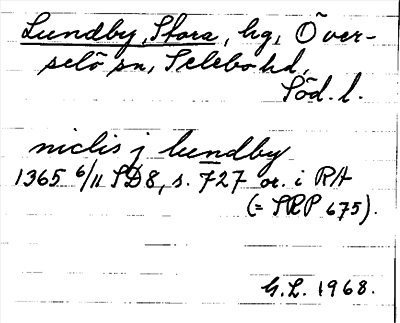 Lundby, Stora, hg, Över-
selö sn, Selebo hd,
Söd. l.
niclis j lundby
1365 6/11 SD8, s. 727 or. i RA
(= SRP 675).
G.L. 1968.